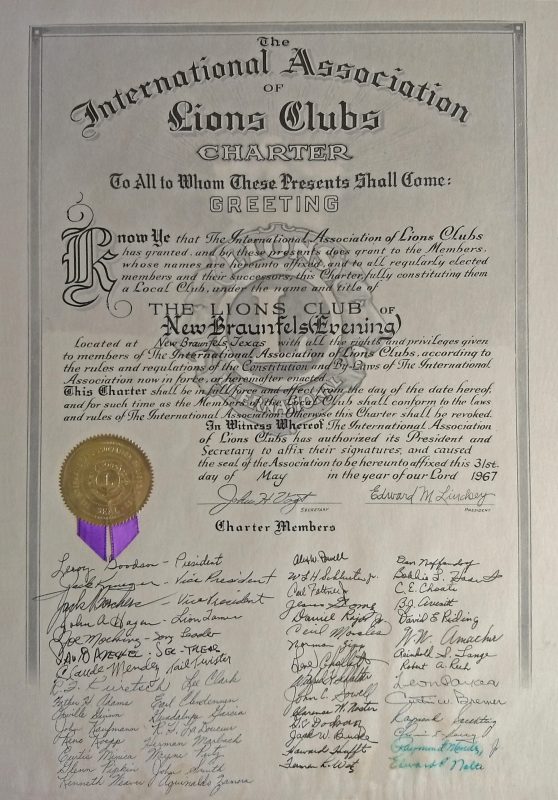 The
International Association
OF
Lions Clubs
CHARTER
To All to Whom These Presents Shall Come:
GREETING
Know Ye that The International Association of Lions Clubs
has granted, and by these presents does grant to the Members,
whose names are hereunto affixed, and to all regularly elected
members and their successors, this Charter, fully constituting them
a Local Club, under the name and title of
THE LIONS CLUB OF
New Braunfels (Evening)
Located at New Braunfels, Texas with all the rights and privileges given
to members of The International Association of Lions Clubs, according to
the rules and regulations of the Constitution and By-Laws of The International
Association now in force, or hereafter enacted.
This Charter shall be in full force and effect from the day of the date hereof,
and for such time as the Members of the Local Club shall conform to the laws
and rules of The International Association, Otherwise this Charter shall be revoked.
In Witness Whereof The International Association
of Lions Clubs has authorized its President and
Secretary to affix their signatures, and caused
the seal of the Association to be hereunto affixed this 31st.
day of May in the year of our Lord 1967
John H Vogt Edward M Lindsey
SECRETARY PRESIDENT
Charter Members
Leroy Goodson - President
Jack Krueger - Vice President
Jack - Vice President
John A Hagen - Lion Tamer
Moehrig - Song Leader
SEC-TREAS
Claude Mendez Tail Twister
Clark
Adams Earl Clendennen
Orville Guadalupe Garcia
John Kaufmann
Koepp Herman Marbach
Curtis Wayne
Glenn Pipkin John Smith
Kenneth Weaver Zamora
Powell
W L H Schlueter Jr.
Carl
Daniel Jr
Cecil Morales
Norman
Gene
John C. Sowell
Clarence W.
Dodson
Jack W. Burke
Howard
Ben Neffendorf
C. E. Choate
B.J.
David E Riding
W W Amacher
Reinhold S. Lange
Robert A. Rech
Leon
Curtis W Bremer
Raymond
Raymond Mendez Jr
Edward P Nolte